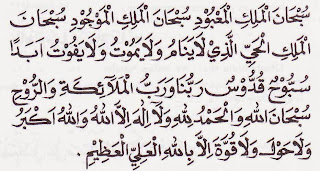 سُبْحَانَ الْمَلِكِ الْمَعْبُوْدِ سُبْحَانَ الْمَلِكِ الْمَوْجُوْدِ سُبْحَانَ
الْمَلِكِ الْحَيِّ الَّذِيْ لَا يَنَامُ وَلَا يَمُوْتُ وَلَا يَفُوْتُ اَبَدًا
سُبُّوْحٌ قُدُّوْسٌ رَبُّنَا وَرَبُّ الْمَلَآئِكَةِ وَالرُّوْحِ
سُبْحَانَ اللهِ وَالْحَمْدُ لِلّٰهِ وَلَا إِلٰهَ اِلَّا اللهُ وَاللهُ اَكْبَرُ
وَلَا حَوْلَ وَلَا قُوَّةَ اِلَّا بِاللهِ الْعَلِيِّ الْعَظِيْمِ.